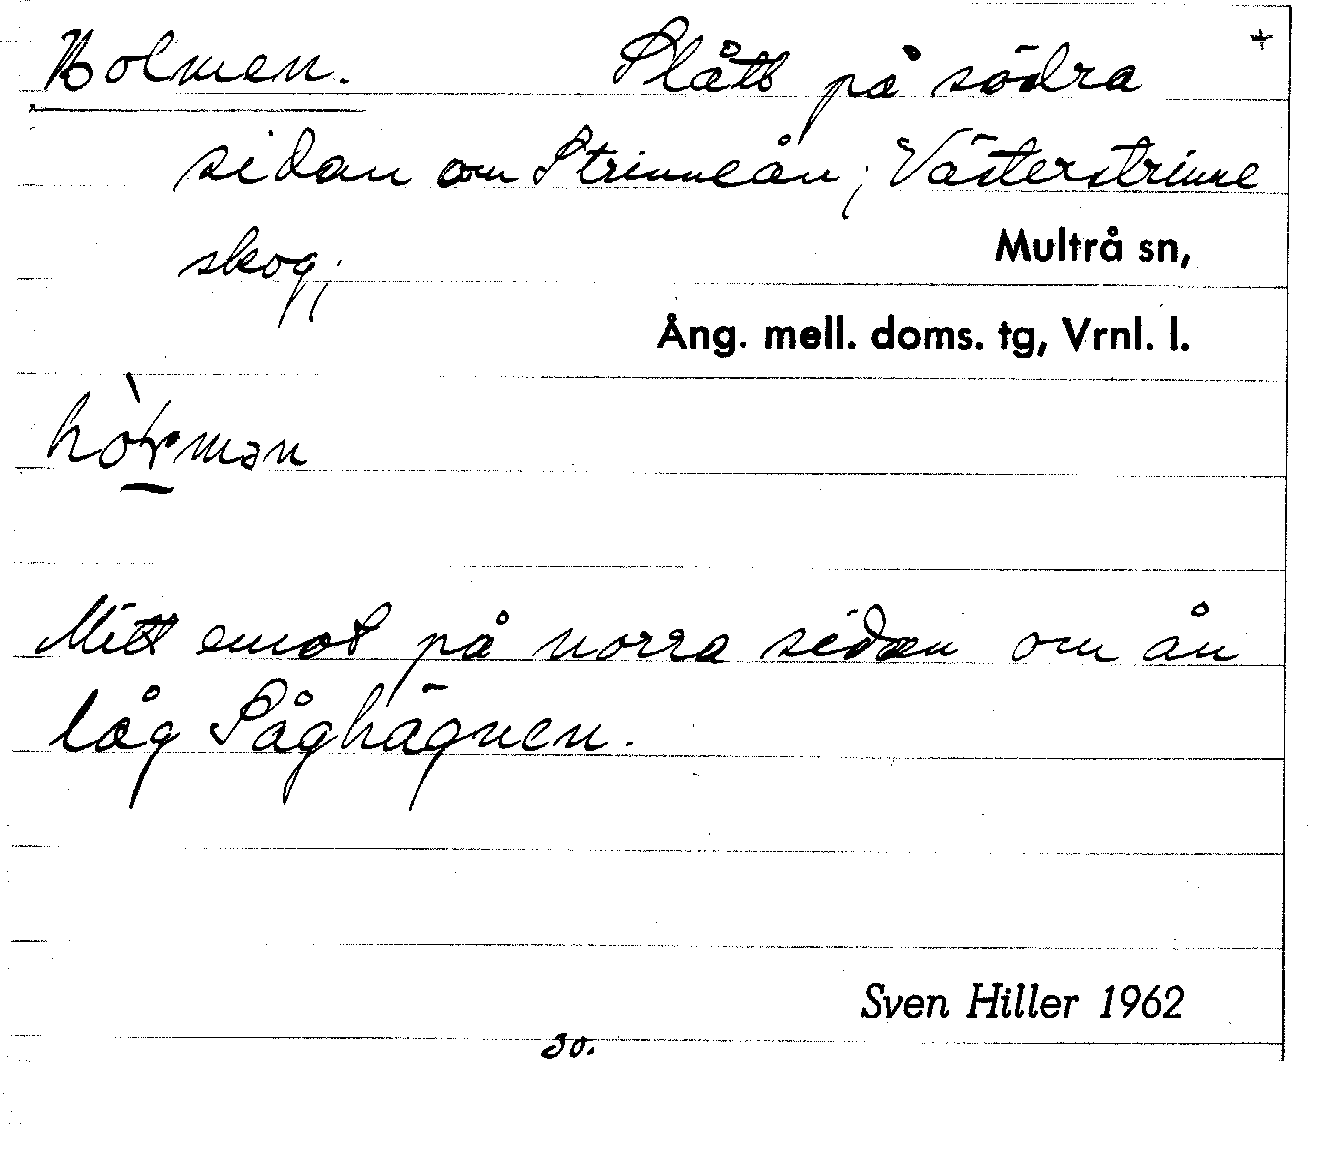 Holmen. Slått på södra +
sidan om Strinneån; Västerstrinne
skog;
Multrå sn,
Ång. mell. doms. tg, Vrnl. l.
Mitt emot på norra sidan om ån
låg Såghägnen.
Sven Hiller 1962